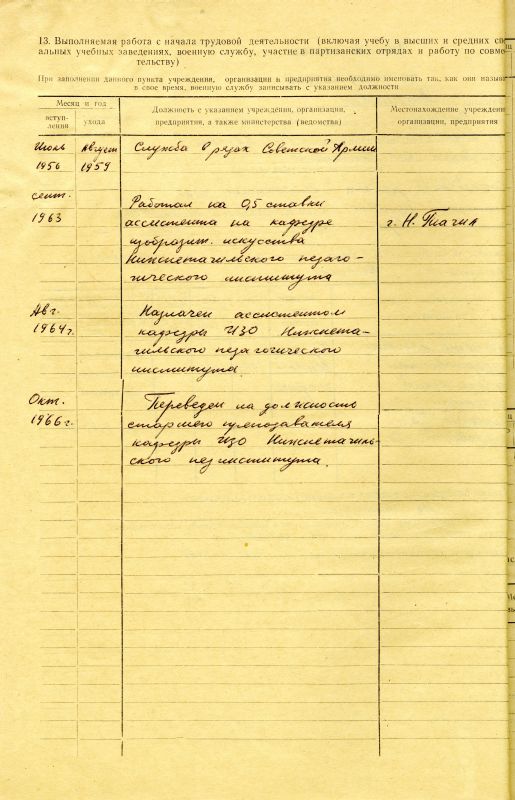 13. Выполняемая работа с начала трудовой деятельности (включая учебу в высших и средних спе
альных учебных заведениях, военную службу, участие в партизанских отрядах и работу по совме
тельству)
При заполнении данного пункта учреждения, организации и предприятия необходимо именовать так, как они назыв
в свое время, военную службу записывать с указанием должности
Месяц и год
вступ-
ления
ухода
Должность с указанием учреждения, организации,
предприятия, а также министерства (ведомства)
Местонахождение учреждени
организации, предприятия
Август
1956
1959
Служба в рядах Советской Армии
сент.
1963
Работал на 0,5 ставки
ассистента на кафедре
изобразит. искусства
Нижнетагильского педаго-
гического института
г. Н. Тагил
Авг.
1964 г.
Назначен ассистентом
кафедры ИЗО Нижнета-
гильского педагогического
института.
Окт.
1966 г.
Переведен на должность
старшего преподавателя
кафедры ИЗО Нижнетагиль-
ского пединститута.